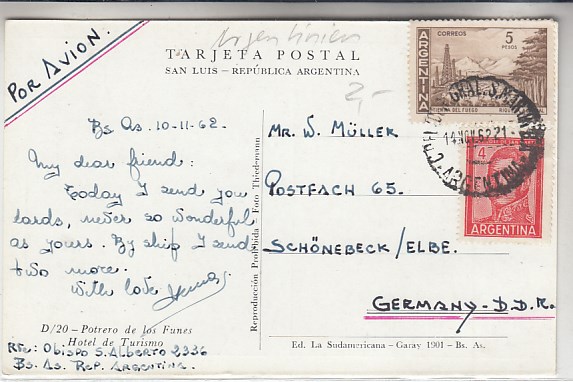 Argentinien
POR AVION.
TARJETA POSTAL
SAN LUIS — REPÚBLICA ARGENTINA
2,-
Bs As. 10-11-62.
My dear friend:
Today I send you
cards, never so wonderful
as yours. By ship I send
two more.
With love
D/20 - Potrero de los Funes
Hotel de Turismo
RTE: OBISPO S. ALBERTO 2336
BS. AS. REP. ARGENTINA.
Reproducción Prohibida - Foto Thiedemann
MR. W. MÜLLER
POSTFACH 65.
SCHÖNEBECK/ELBE.
GERMANY-D.D.R.
Ed. La Sudamericana - Garay 1901 - Bs. As.
CORREOS
5
PESOS
ARGENTINA
TIERRA DEL FUEGO
14 NOV 62 21
GRAL. S. MARTIN
ARGENTINA
4
ARGENTINA